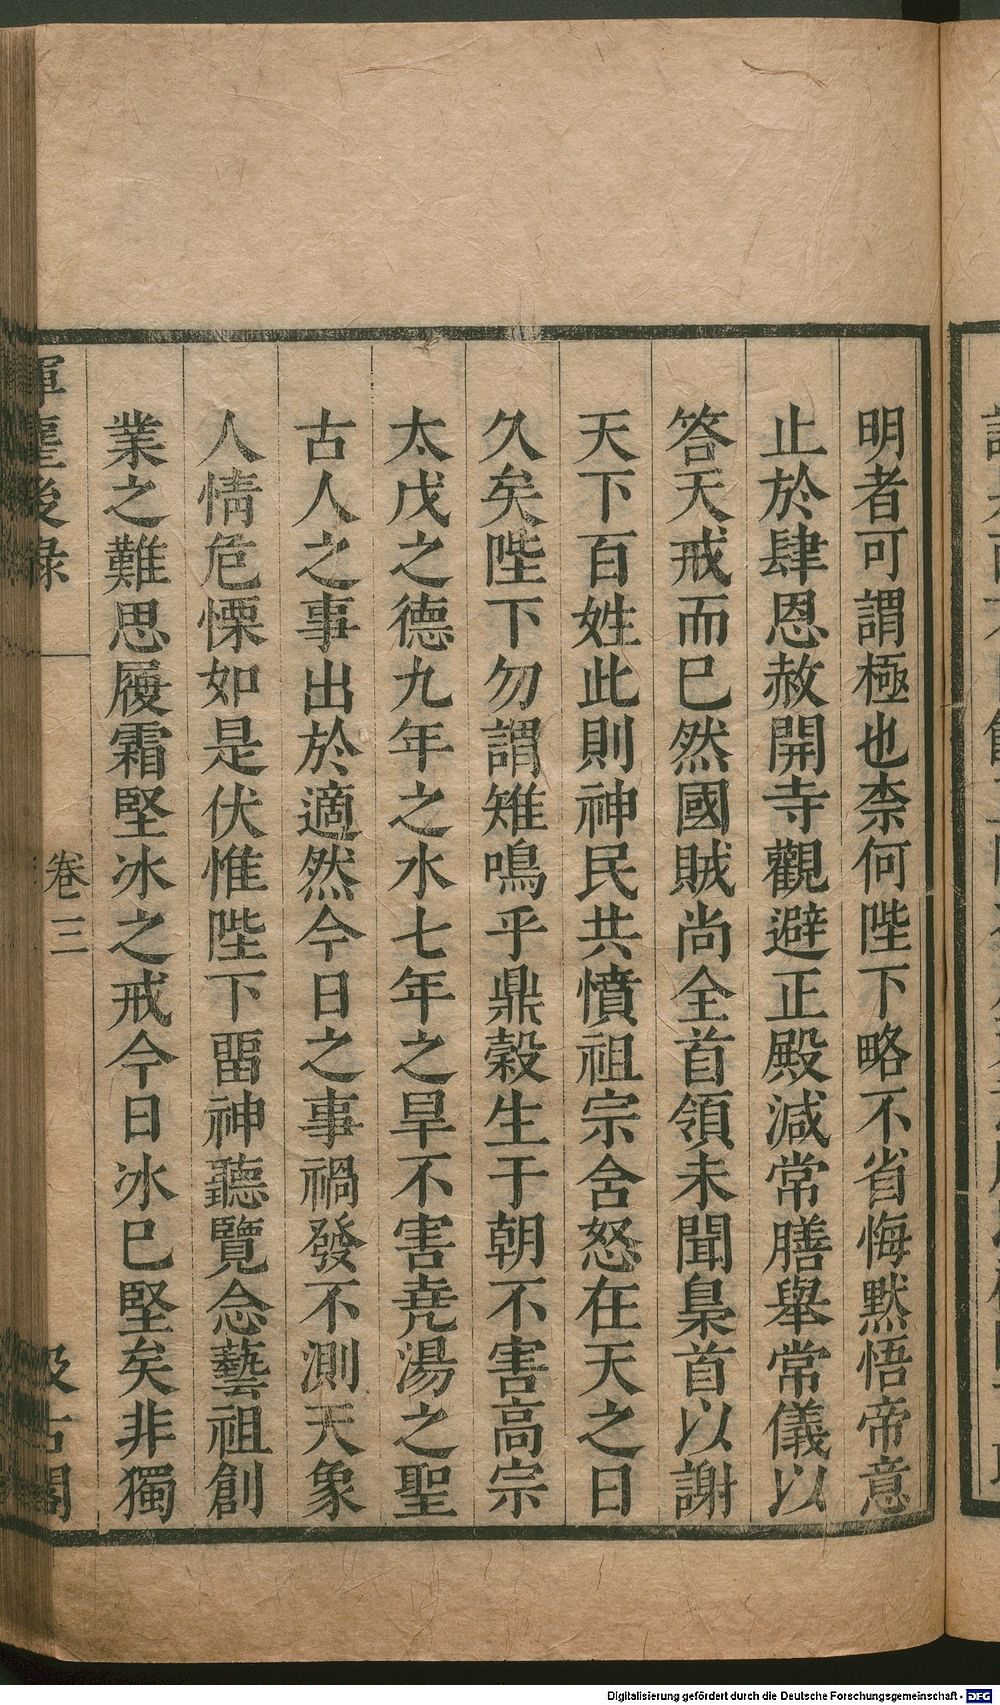 明者可謂極也柰何陛下略不省悔默悟帝意
止於肆恩赦開寺觀避正殿減常膳舉常儀以
答天戒而巳然國賊尚全首領未聞梟首以謝
天下百姓此則神民共憤祖宗含怒在天之日
久矣陛下勿謂雉鳴乎鼎穀生于朝不害高宗
太戊之德九年之水七年之旱不害堯湯之聖
古人之事出於適然今日之事禍發不測天象
人情危慄如是伏惟陛下畱神聽覽念藝祖創
業之難思履霜堅冰之戒今日冰巳堅矣非獨
揮麈後録
卷三
汲古閣
Digitalisierung gefördert durch die Deutsche Forschungsgemeinschaft - DFG